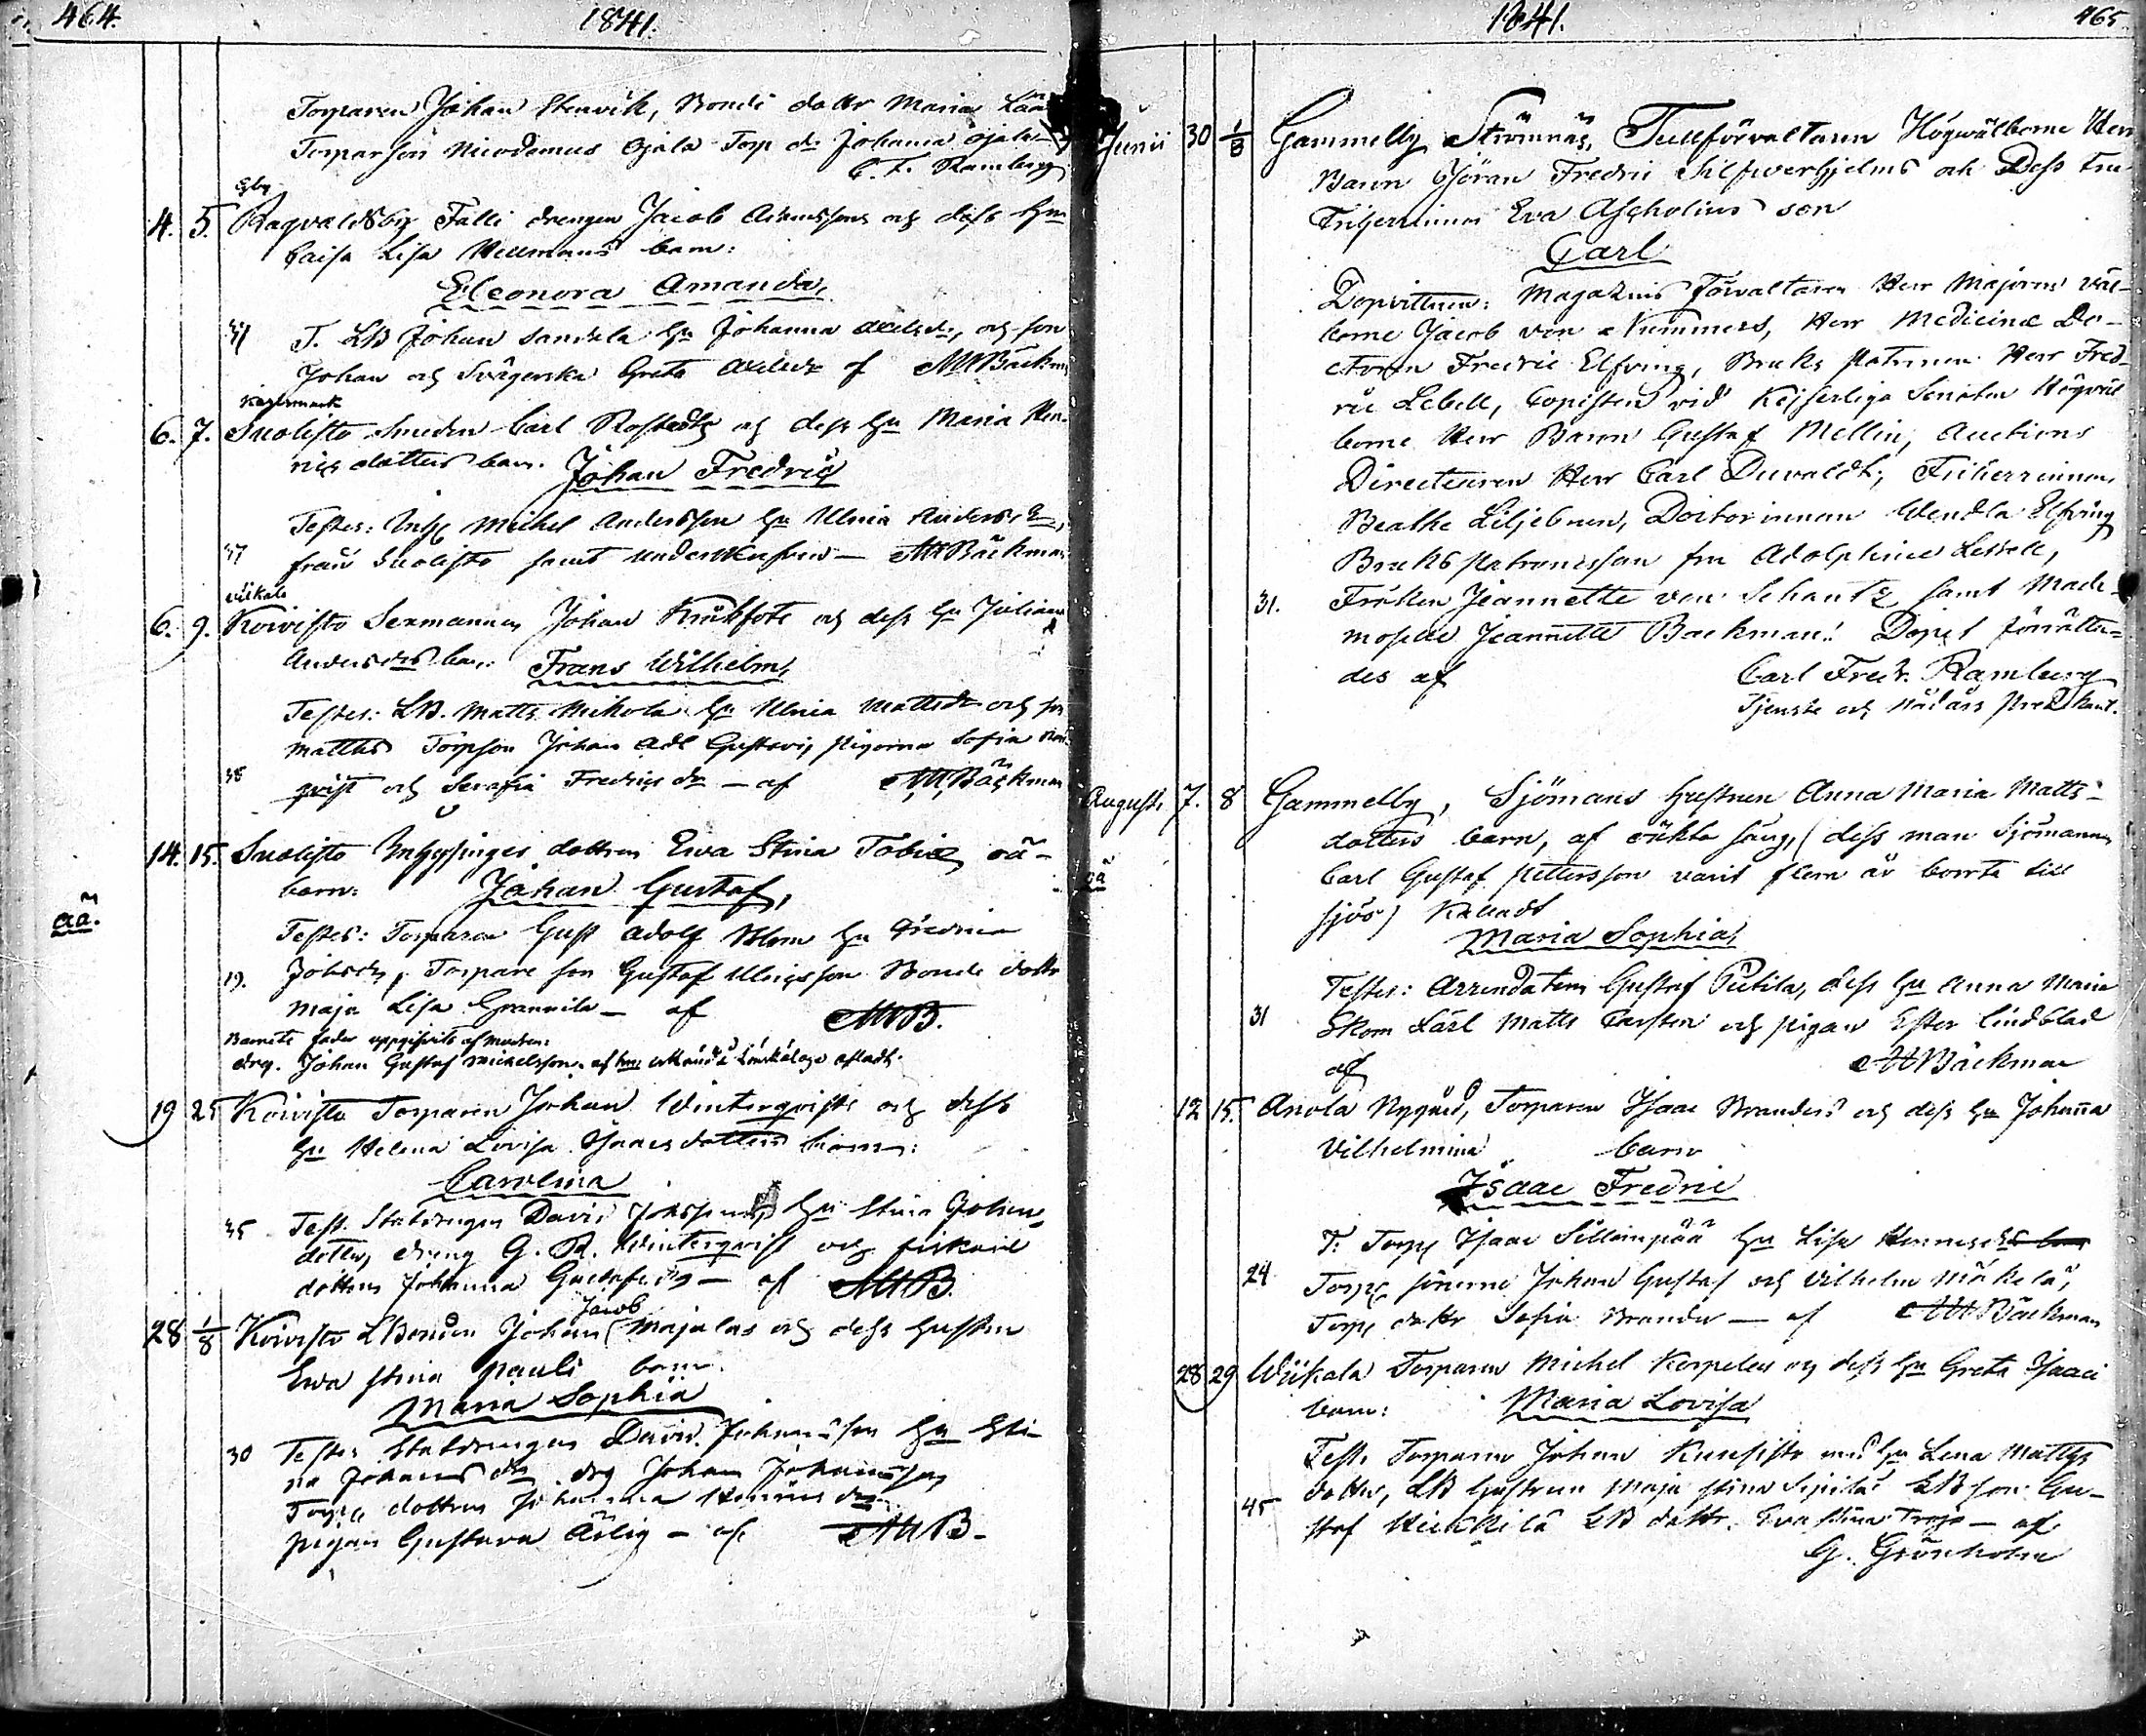 464.
1841.
Torparen Johan Stenvik, Bonde dottr Maria
Torparson Nicodemus Ojala Torp d: Johanna Ojala
C. F. Ramberg
Gby
4. 5. Ragvaldsby Fälli drengen Jacob Adamssons och dess Hu
Caisa Lisa Hellmans barn:
Eleonora Amanda,
T. LB Johan Sandela Hu Johanna Axelsdr, och son
Johan och Svägerska Greta Axelsdr af MBäckman
6. 7. Suolisto Smeden Carl Rostedts och dess Hu Maria Hen-
ricsdotters barn. Johan Fredric
Testes: Michel Andersson Hu Ulrica Anders
37 från Suolisto samt MBäckman
Viikala
6. 9. Koivisto Sexmannen Johan Kråkfots och dess Hu Juliana
Andersdrs barn: Frans Wilhelm,
Testes: LB. Matts Mikola Hu Ulrica Mattsdr och son
Matths Torpson Johan Adl Gustavi, pigorna Sofia
38 qvist och Serafia Fredricsdr – af MBäckman
14. 15. Suolisto Inhysinges dottren Ewa Stina Tobiæ oä-
barn: Johan Gustaf,
oä.
Testes: Torparen Gust Adolf Blom Hu Fredrica
19. Jobsdr, Torpare son Gustaf Ulricsson Bonde dottr
Maja Lisa Grannila – af MB.
Barnets fader uppgifvits af modren:
drg. Johan Gustaf Michelsson
19 25 Koivisto Torparen Johan Winterqvists och dess
Hu Helena Lovisa Isaacsdotters barn:
Carolina
35 Test. Statdrengen David Hu Stina Johans
dotter, dreng G. R. Winterqvist och
dottren Johanna Gustafsdr – af MB.
Jacob
28 1/8 Koivisto LBonden Johan Majalas och dess hustru
Ewa Stina Pauli barn
Maria Sophia
30 Testes Statdrengen David Johansson Hu Sti-
na Johansdr drg Johan Johansson
Torp dottren Johanna Henricsdr
pigan Gustava Ärlig – af MB.
1841.
465
Junii 30 1/8 Gammelby Strömnäs, Tullförvaltaren Högwälborne Herr
Baron Göran Fredric Silfwerhjelms och Dess Fru
Friherrinnan Eva Ascholins son
Carl
Dopvittnen: Magazins Förvaltaren Herr Majoren väl-
borne Jacob von Nummers, Herr Medicinæ Do-
ctoren Fredric Elfving, Bruks Patronen Herr Fred-
ric Lebell, Copisten vid Kejserliga Senaten Högväl
borne Herr Baron Gustaf Mellin, Auctions
Directeuren Herr Carl Duvaldt, Friherrinnan
Beathe Liljebrun, Doctorinnan Wendla Elfving
Bruks patronessan fru Adolphine Lebell,
31. Fröken Jeannette von Schantz samt Made-
moselle Jeannette Backman. Dopet förrätta-
des af Carl Fredr. Ramberg
Tjenste och Nådårs Predikant.
Augusti 7. 8 Gammelby, Sjömans hustrun Anna Maria Matts-
dotters barn, af oäkta säng, (dess man Sjömannen
Carl Gustaf Pettersson varit flera år borta till
oä
sjös) Kalladt
Maria Sophia,
Testes: Arrendatorn Gustaf Putila, dess Hu Anna Maria
31 Skom Karl Matts Carsten och pigan Ester Lindblad
af MBäckman
12 15. Anola Nygård, Torparen Isaac Branders och dess Hu Johanna
Vilhelmina barn
Isaac Fredric
T. Torp Isaac Sillanpää Hu Lisa
24 Torp sönerne Johan Gustaf och Vilhelm Mäkelä,
Torp dottr Sofia Brander – af MBäckman
28 29 Wiikala Torparen Michel Korpelas och dess Hu Greta Isaaci
barn: Maria Lovisa
Test. Torparen Johan Kuusisto med Hu Lena Matts
dotter, LB hustrun Maja Stina Sipilä LB son Gu-
45 staf Heikkilä LB dottr. Eva Stina Trojo – af
G. Grönholm